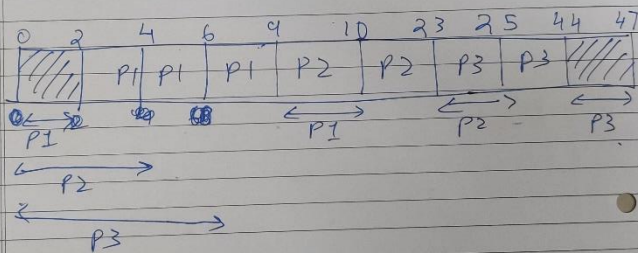 0 2 4 6 9 10 23 25 44 47
P1 P1 P1 P2 P2 P3 P3
P1 P1 P2 P3
P2
P3